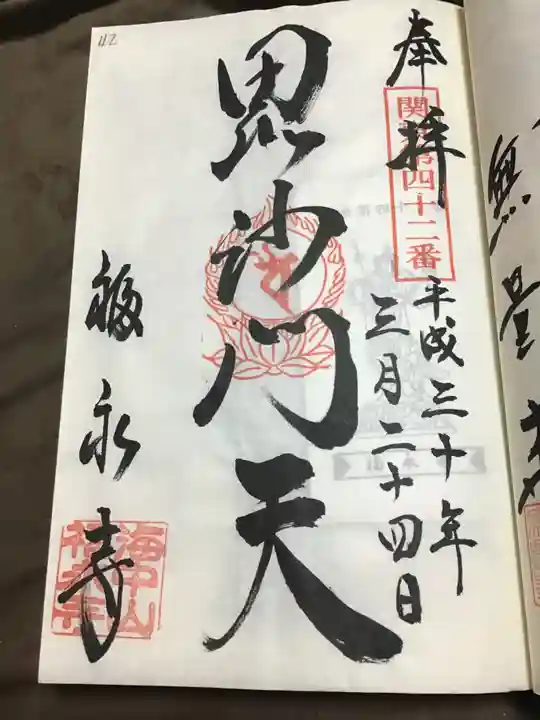 奉拝
関東第四十二番
平成三十年
三月二十四日
毘沙門天
福永寺
海中山
福永寺
42